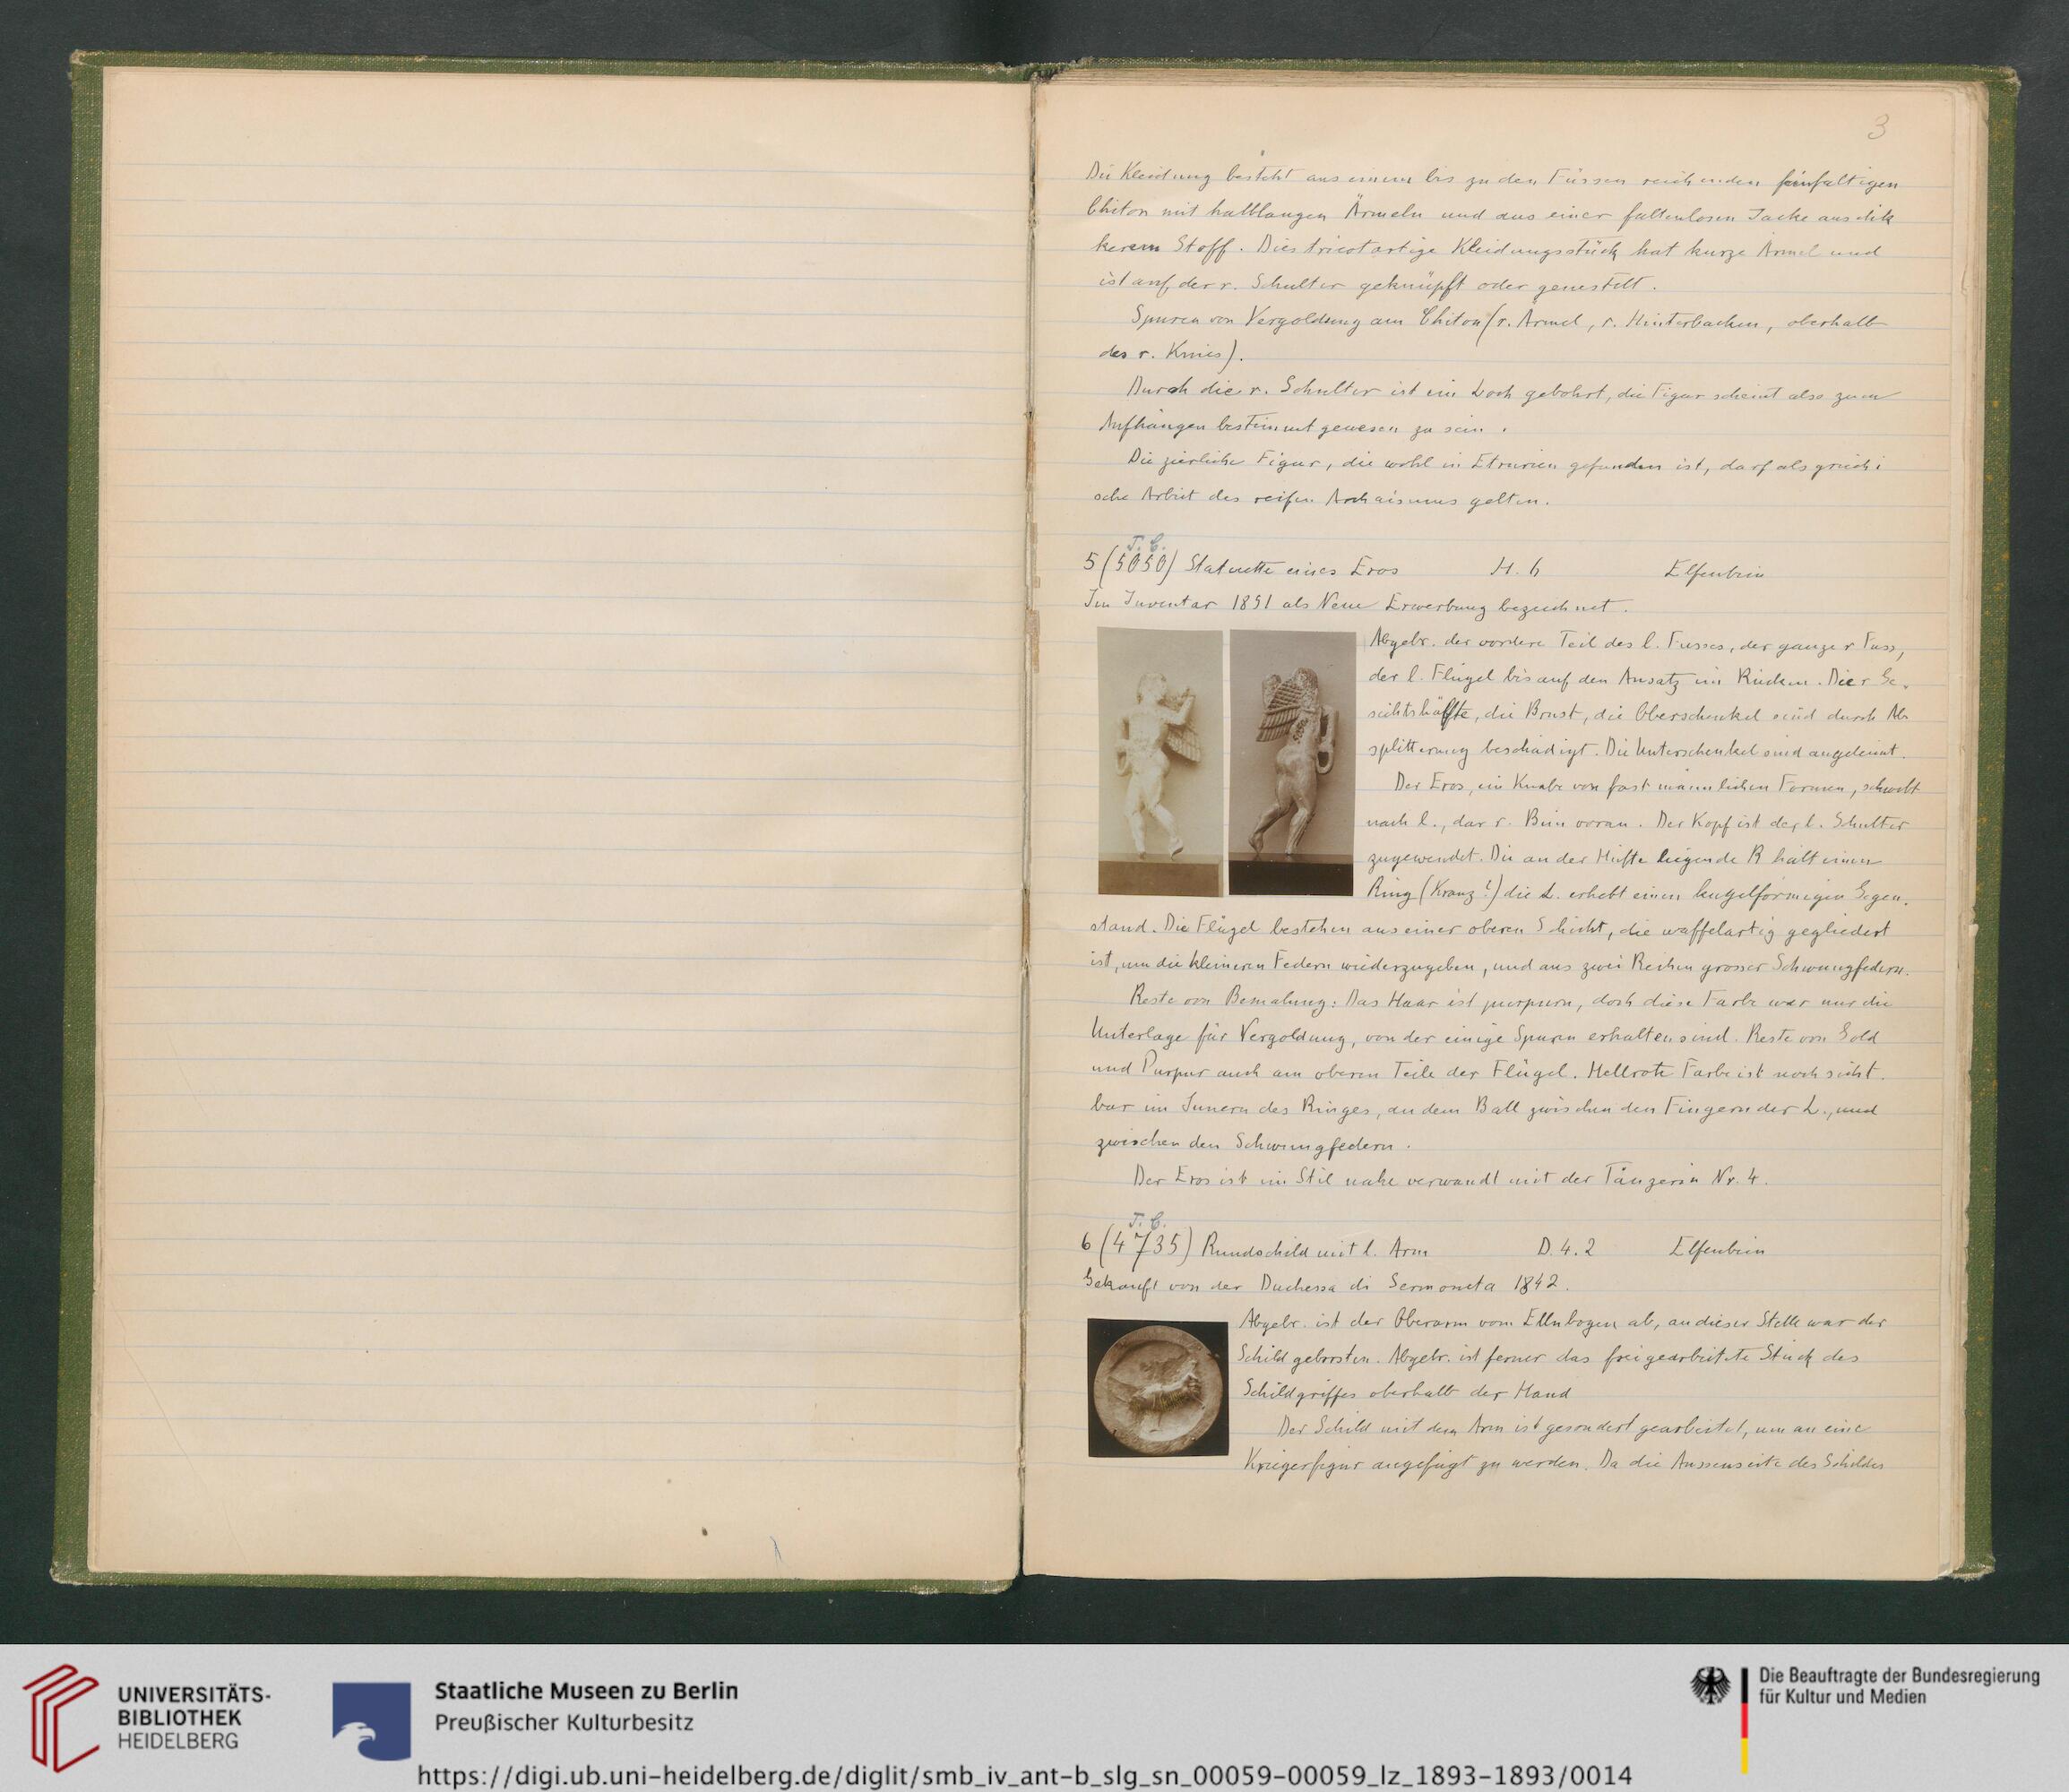 3
Die Kleidung besteht aus einem bis zu den Füssen reichenden feinfaltigen
Chiton mit halblangen Ärmeln und aus einer faltenlosen Jacke aus dik
kerem Stoff. Dies tricotartige Kleidungsstück hat kurze Ärmel und
ist auf der r. Schulter geknüpft oder genestelt.
Spuren von Vergoldung am Chiton (r. Ärmel, r. Hinterbacken, oberhalb
des r. Knies).
Durch die r. Schulter ist ein Loch gebohrt, die Figur scheint also zum
Aufhängen bestimmt gewesen zu sein.
Die zierliche Figur, die wohl in Etrurien gefunden ist, darf als griechi
sche Arbeit des reifen Archaismus gelten.
T. C.
5 (5050) Statuette eines Eros H. 6 Elfenbein
Im Inventar 1851 als Neue Erwerbung bezeichnet.
Abgebr. der vordere Teil des l. Fusses, der ganze r Fuss,
der l. Flügel bis auf den Ansatz im Rücken. Die r Ge-
sichtshälfte, die Brust, die Oberschenkel sind durch Ab
splitterung beschädigt. Die Unterschenkel sind angeleimt.
Der Eros, ein Knabe von fast männlichen Formen, schwebt
nach l., das r. Bein voran. Der Kopf ist der l. Schulter
zugewendet. Die an der Hüfte liegende R hält einen
Ring (Kranz?) die L. erhebt einen kugelförmigen Gegen-
stand. Die Flügel bestehen aus einer oberen Schicht, die waffelartig gegliedert
ist, um die kleineren Federn wiederzugeben, und aus zwei Reihen grosser Schwungfedern.
Reste von Bemalung: Das Haar ist purpurn, doch diese Farbe war nur die
Unterlage für Vergoldung, von der einige Spuren erhalten sind. Reste von Gold
und Purpur auch am oberen Teile der Flügel. Hellrote Farbe ist noch sicht-
bar im Innern des Ringes, an dem Ball zwischen den Fingern der L., und
zwischen den Schwungfedern.
Der Eros ist im Stil nahe verwandt mit der Tänzerin Nr. 4.
T. C.
6 (4735) Rundschild mit l. Arm D. 4.2 Elfenbein
Gekauft von der Duchessa di Sermoneta 1842.
Abgebr. ist der Oberarm vom Ellnbogen ab, an dieser Stelle war der
Schild geborsten. Abgebr. ist ferner das freigearbeitete Stück des
Schildgriffes oberhalb der Hand
Der Schild mit dem Arm ist gesondert gearbeitet, um an eine
Kriegerfigur angefügt zu werden. Da die Aussenseite des Schildes
UNIVERSITÄTS-
BIBLIOTHEK
HEIDELBERG
Staatliche Museen zu Berlin
Preußischer Kulturbesitz
Die Beauftragte der Bundesregierung
für Kultur und Medien
https://digi.ub.uni-heidelberg.de/diglit/smb_iv_ant-b_slg_sn_00059-00059_lz_1893-1893/0014